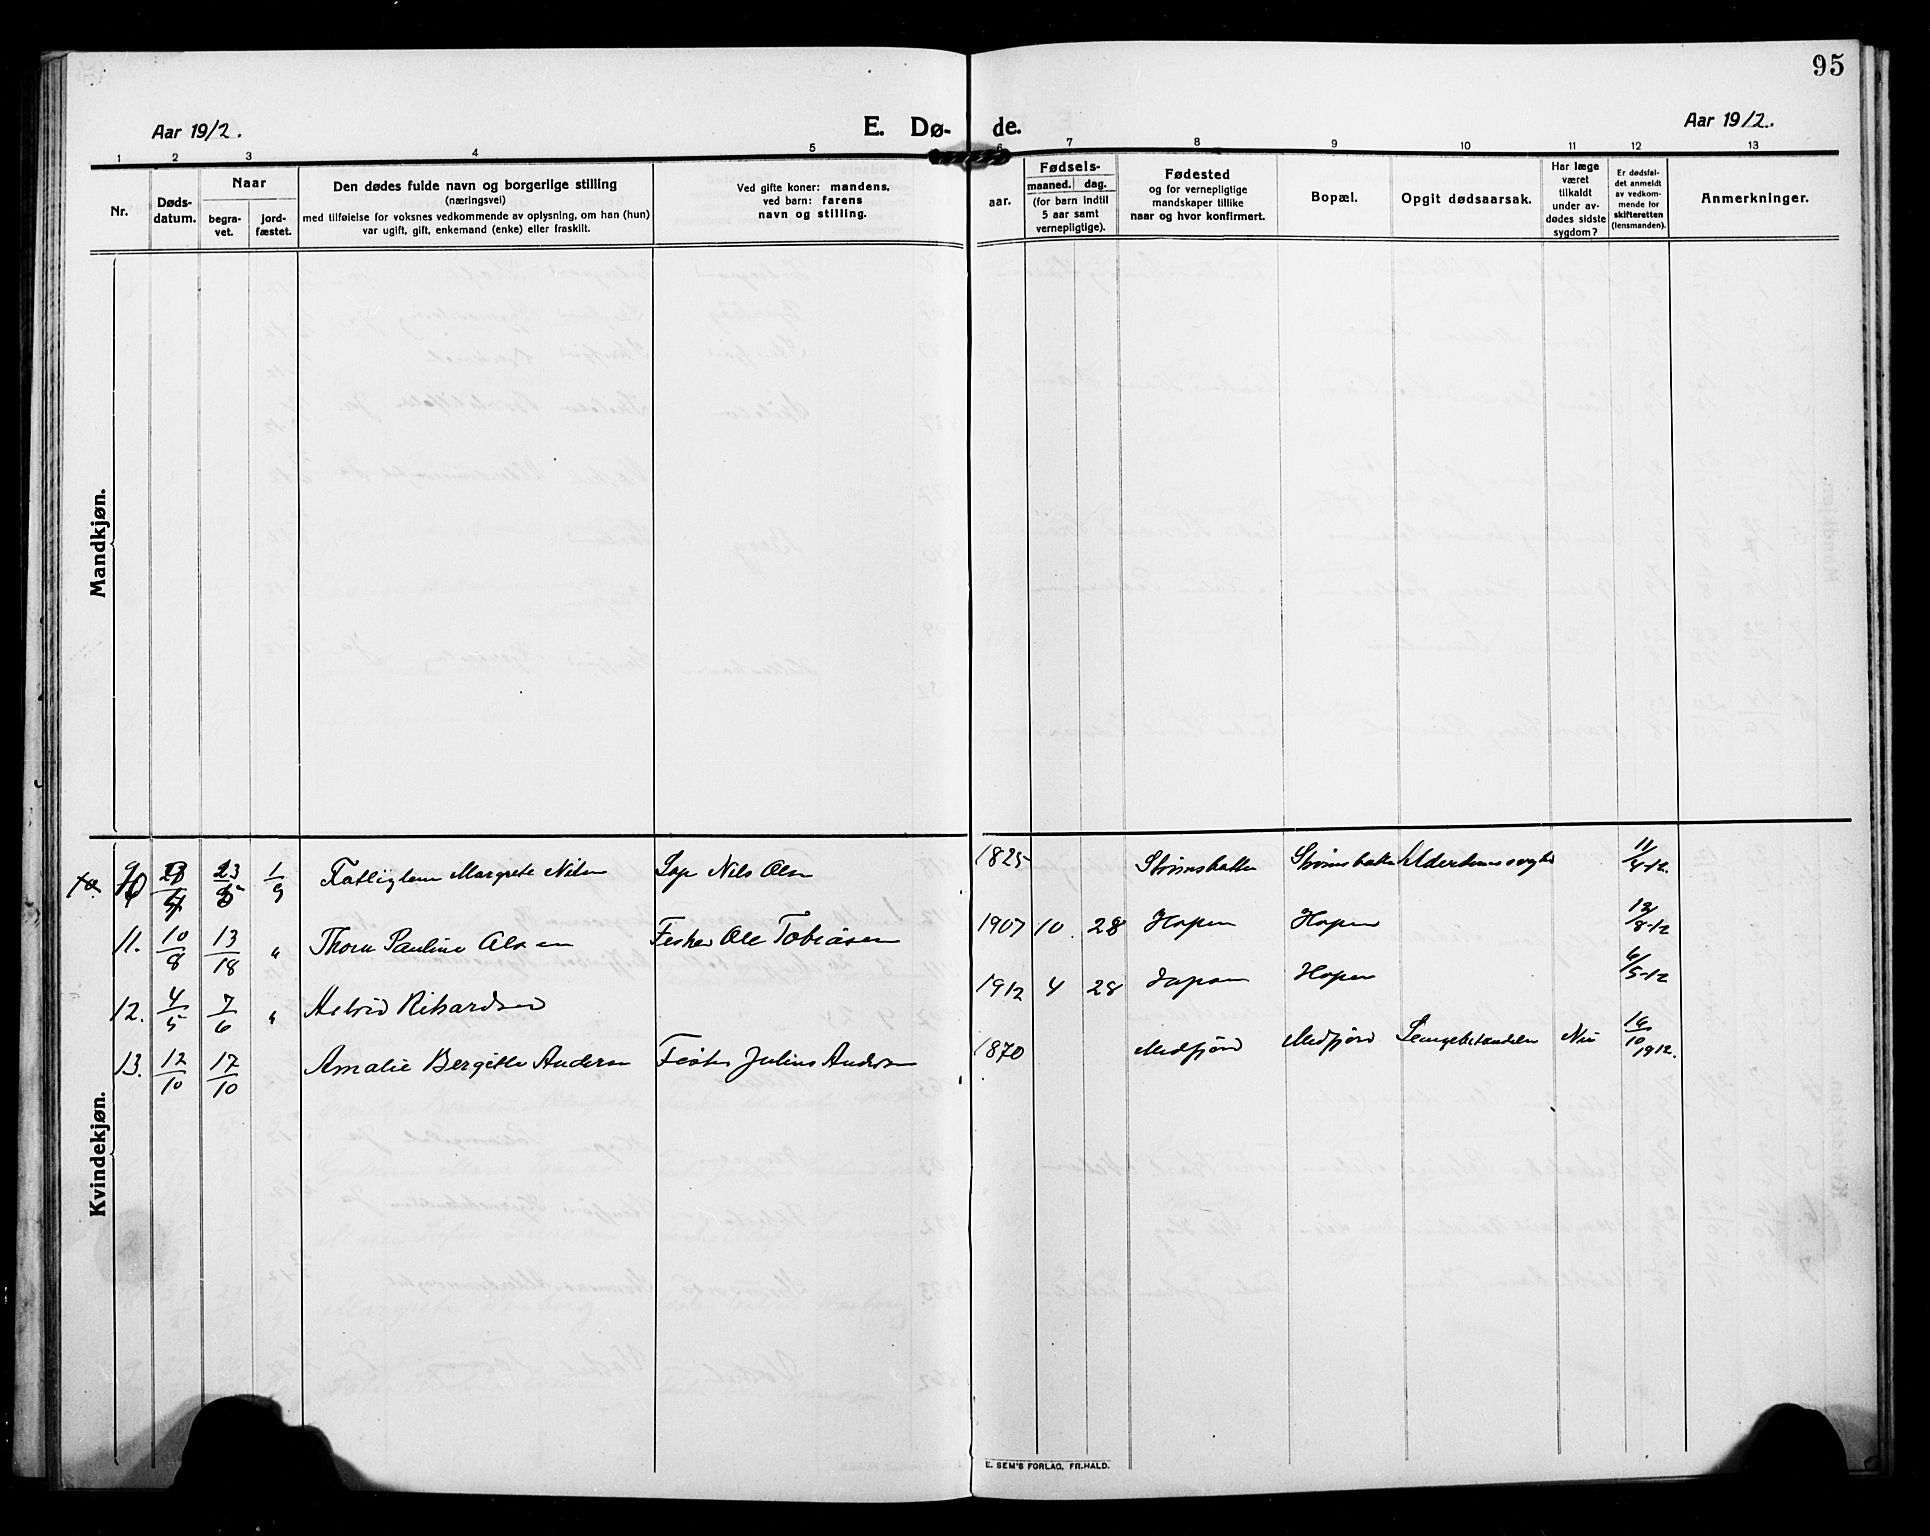 95
Aar 1912.
E. Dø-
de.
Aar 1912.
1 2 3 4 5 6 7 8 9 10 11 12 13
Nr.
Døds-
datum.
Naar
begra-
vet.
jord-
fæstet.
Den dødes fulde navn og borgerlige stilling
(næringsvei)
med tilføielse for voksnes vedkommende av oplysning, om han (hun)
var ugift, gift, enkemand (enke) eller fraskilt.
Ved gifte koner: mandens.
ved barn: farens
navn og stilling.
Fødsels-
aar.
maaned. dag.
(for barn indtil
5 aar samt
vernepligtige).
Fødested
og for vernepligtige
mandskaper tillike
naar og hvor konfirmert.
Bopæl.
Opgit dødsaarsak.
Har læge
været
tilkaldt
under av-
dødes sidste
sygdom?
Er dødsfal-
det anmeldt
av vedkom-
mende for
skifteretten
(lensmanden).
Anmerkninger.
Mandkjøn.
Kvindekjøn.
10 23 1/9 Fattiglem Margrete Nilsen Lap Nils Olsen 1825 Strømsbotten Strømsbotten Alderdomssvaghed 11/4-12.
11. 10/8 13/18 " Thora Pauline Olsen Fisker Ole Tobiasen 1907 10. 28 Hopen Hopen 12/8-12
12. 4/5 7/6 " Astrid Rikardsen 1912 4 28 Hopen 6/5-12
13. 12/10 17/10 Amalie Bergitte Andersen Fisker Julius Andersen 1870 Medfjord Medfjord Lungebetændelse Nei 16/10 1912.
E. SEM'S FORLAG, FR.HALD.